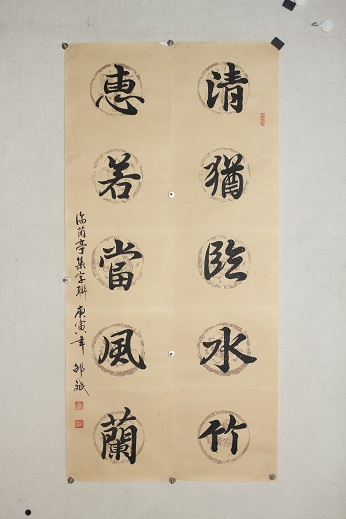 清猶臨水竹
惠若當風蘭
臨蘭亭集字聯 庚寅年 郭斌